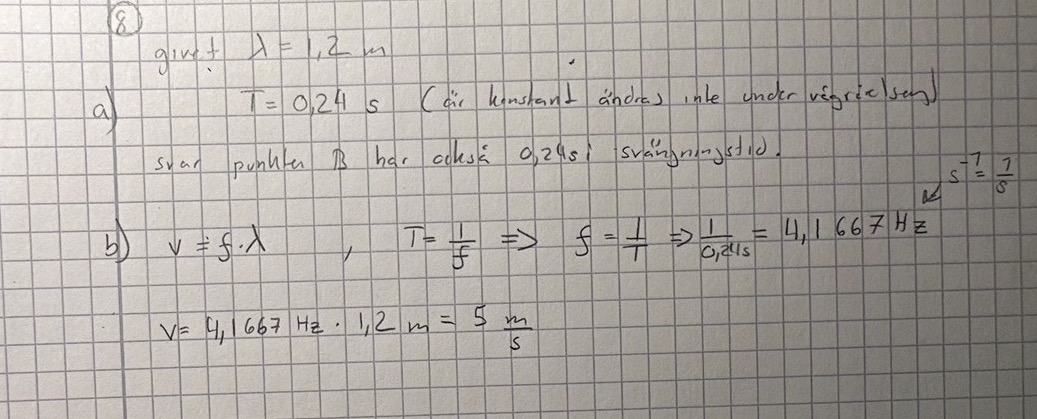 8
givet λ = 1,2 m
a) T = 0,24 s (är konstant ändras inte under vågrörelsen)
svar punkten B har också 0,24s i svängningstid.
s⁻¹ = 1/s
b) v = f·λ , T = 1/f => f = 1/T => 1/0,24s = 4,1667 Hz
v = 4,1667 Hz · 1,2 m = 5 m/s